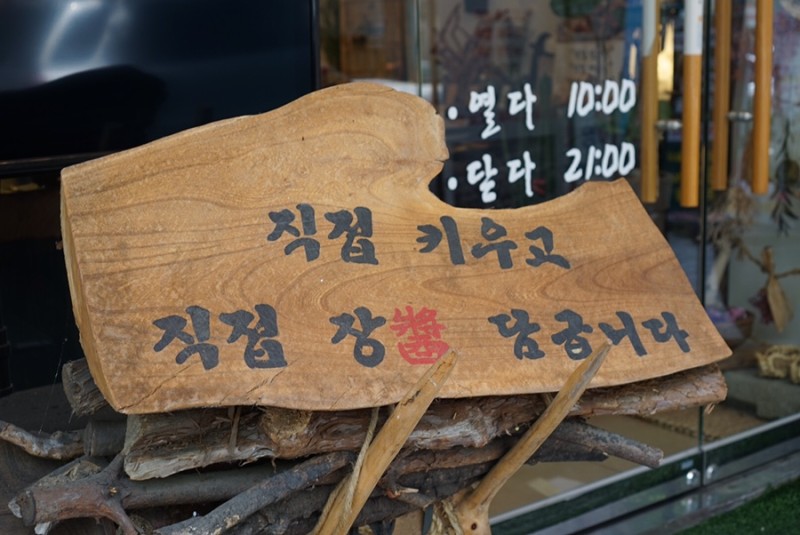 · 열다 10:00
· 닫다 21:00
직접 키우고
직접 장醬 담굽니다